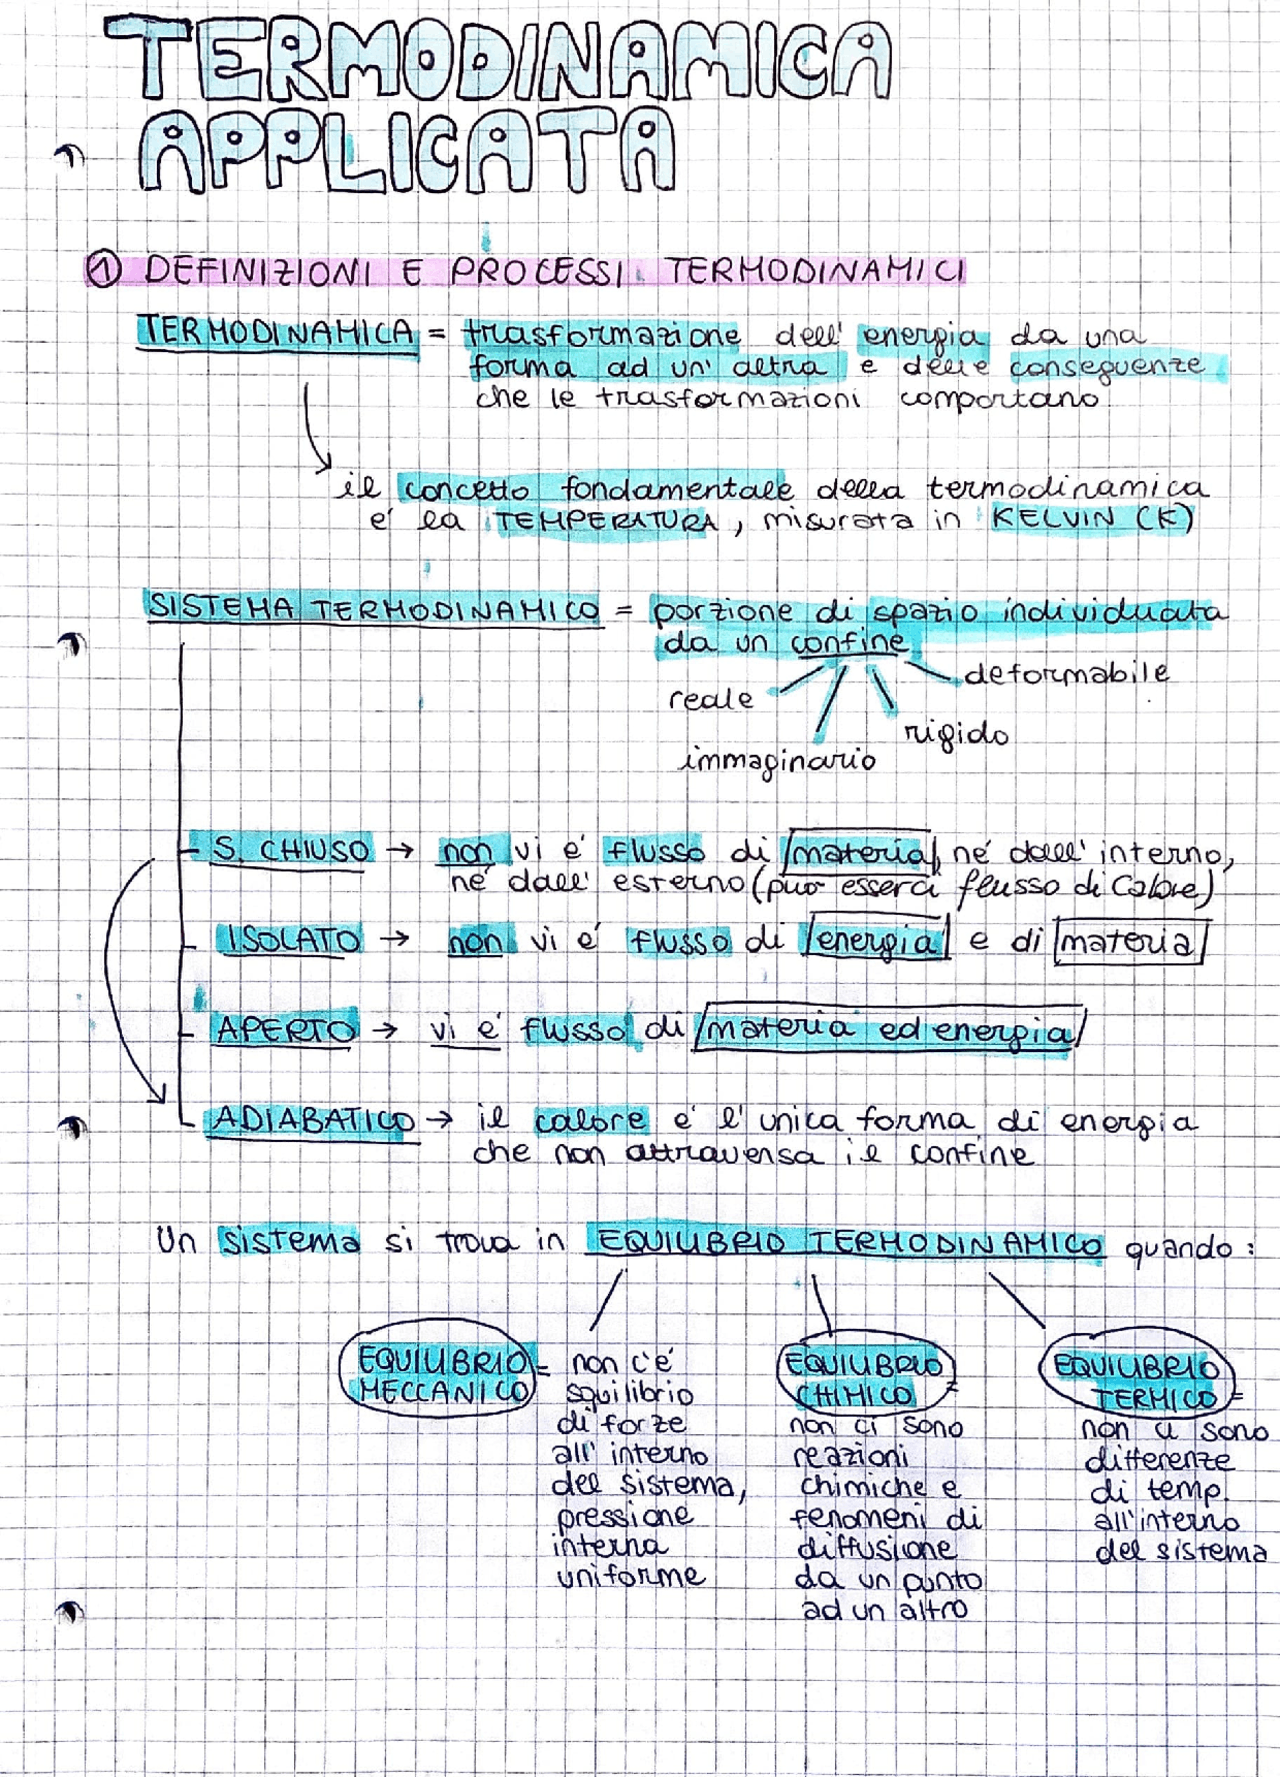 TERMODINAMICA
APPLICATA
① DEFINIZIONI E PROCESSI TERMODINAMICI
TERMODINAMICA = trasformazione dell' energia da una
forma ad un' altra e delle conseguenze
che le trasformazioni comportano
il concetto fondamentale della termodinamica
e' la TEMPERATURA, misurata in KELVIN (K)
SISTEMA TERMODINAMICO = porzione di spazio individuata
da un confine
deformabile
reale
rigido
immaginario
S. CHIUSO → non vi e' flusso di materia, ne' dall' interno,
ne' dall' esterno (puo' esserci flusso di calore)
ISOLATO → non vi e' flusso di energia e di materia
APERTO → vi e' flusso di materia ed energia
ADIABATICO → il calore e' l'unica forma di energia
che non attraversa il confine
Un sistema si trova in EQUILIBRIO TERMODINAMICO quando:
EQUILIBRIO
MECCANICO =
non c'e'
squilibrio
di forze
all' interno
del sistema,
pressione
interna
uniforme
EQUILIBRIO
CHIMICO =
non ci sono
reazioni
chimiche e
fenomeni di
diffusione
da un punto
ad un altro
EQUILIBRIO
TERMICO =
non ci sono
differenze
di temp.
all'interno
del sistema